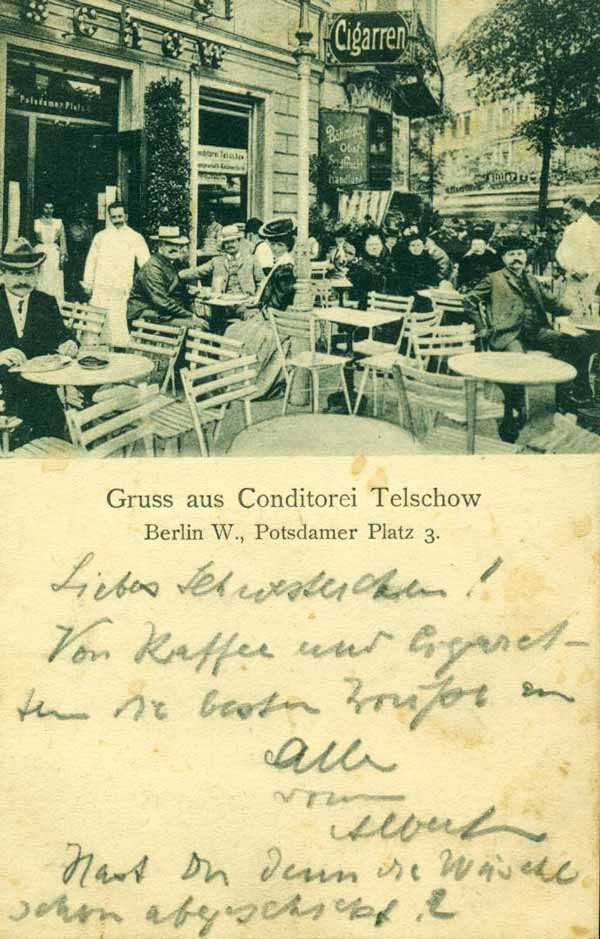 Cigarren
Potsdamer Platz
Conditorei Telschow
Böhmische
Obst-
Handlung
Gruss aus Conditorei Telschow
Berlin W., Potsdamer Platz 3.
Liebes Schwesterchen!
Von Kaffee und Cigaret-
ten die besten Grüße an
Alle
vom
Albert
Hast Du denn die Wäsche
schon abgeschickt?